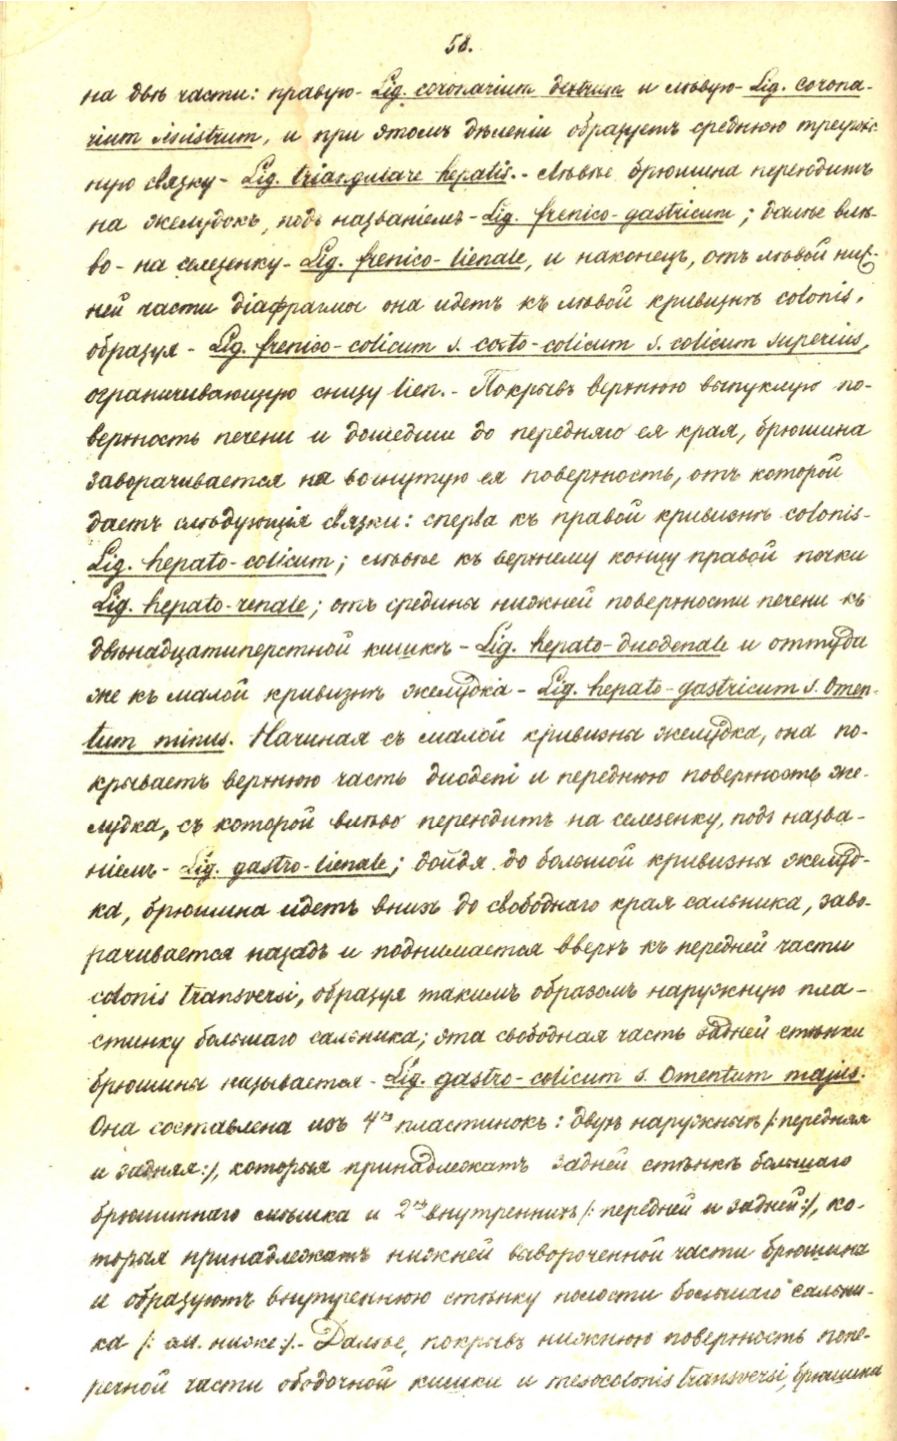 58.
на двѣ части: правую - Lig. coronarium dextrum и лѣвую - Lig. corona-
rium sinistrum, и при этомъ дѣленіи образуетъ среднюю треуголь-
ную связку - Lig. triangulare hepatis. - Лѣвѣе брюшина переходитъ
на желудокъ, подъ названіемъ - Lig. frenico-gastricum; далѣе влѣ-
во - на селезенку - Lig. frenico-lienale, и наконецъ, отъ лѣвой ниж-
ней части діафрагмы она идетъ къ лѣвой кривизнѣ colonis,
образуя - Lig. frenico-colicum s. costo-colicum s. colicum superius,
ограничивающую снизу lien. - Покрывъ верхнюю выпуклую по-
верхность печени и дошедши до передняго ея края, брюшина
заворачивается на вогнутую ея поверхность, отъ которой
даетъ слѣдующія связки: сперва къ правой кривизнѣ colonis -
Lig. hepato-colicum; лѣвѣе къ верхнему концу правой почки
Lig. hepato-renale; отъ средины нижней поверхности печени къ
двѣнадцатиперстной кишкѣ - Lig. hepato-duodenale и оттуда
же къ малой кривизнѣ желудка - Lig. hepato-gastricum s. Omen-
tum minus. Начиная съ малой кривизны желудка, она по-
крываетъ верхнюю часть duodeni и переднюю поверхность же-
лудка, съ которой влѣво переходитъ на селезенку, подъ назва-
ніемъ - Lig. gastro-lienale; дойдя до большой кривизны желуд-
ка, брюшина идетъ внизъ до свободнаго края сальника, заво-
рачивается назадъ и поднимается вверхъ къ передней части
colonis transversi, образуя такимъ образомъ наружную пла-
стинку большаго сальника; эта свободная часть задней стѣнки
брюшины называется - Lig. gastro-colicum s. Omentum majus.
Она составлена изъ 4хъ пластинокъ: двухъ наружныхъ /:передняя
и задняя:/, которыя принадлежатъ задней стѣнкѣ большаго
брюшиннаго мѣшка и 2хъ внутреннихъ /:передней и задней:/, ко-
торыя принадлежатъ нижней вывороченной части брюшины
и образуютъ внутреннюю стѣнку полости большаго сальни-
ка /: см. ниже:/. - Далѣе, покрывъ нижнюю поверхность попе-
речной части ободочной кишки и mesocolonis transversi, брюшина